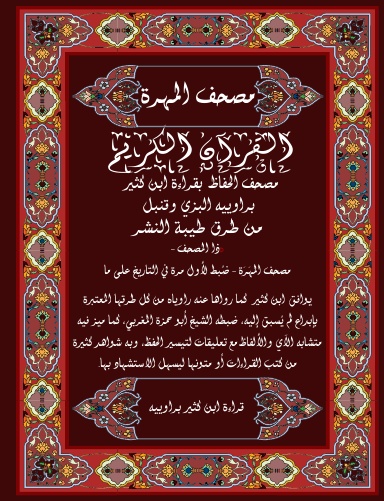 مصحف المهرة
القرآن الكريم
مصحف الحفاظ بقراءة ابن كثير
براوييه البزي وقنبل
من طرق طيبة النشر
- ذا المصحف
مصحف المهرة - ضبط لأول مرة في التاريخ على ما
يوافق ابن كثير كما رواها عنه راوياه من كل طرقها المعتبرة
بإبداع لم يسبق إليه، ضبطه الشيخ أبو حمزة المغربي، كما ميز فيه
متشابه الآي والألفاظ مع تعليقات لتيسير الحفظ، وبه شواهد كثيرة
من كتب القراءات أو متونها ليسهل الاستشهاد بها.
قراءة ابن كثير براوييه